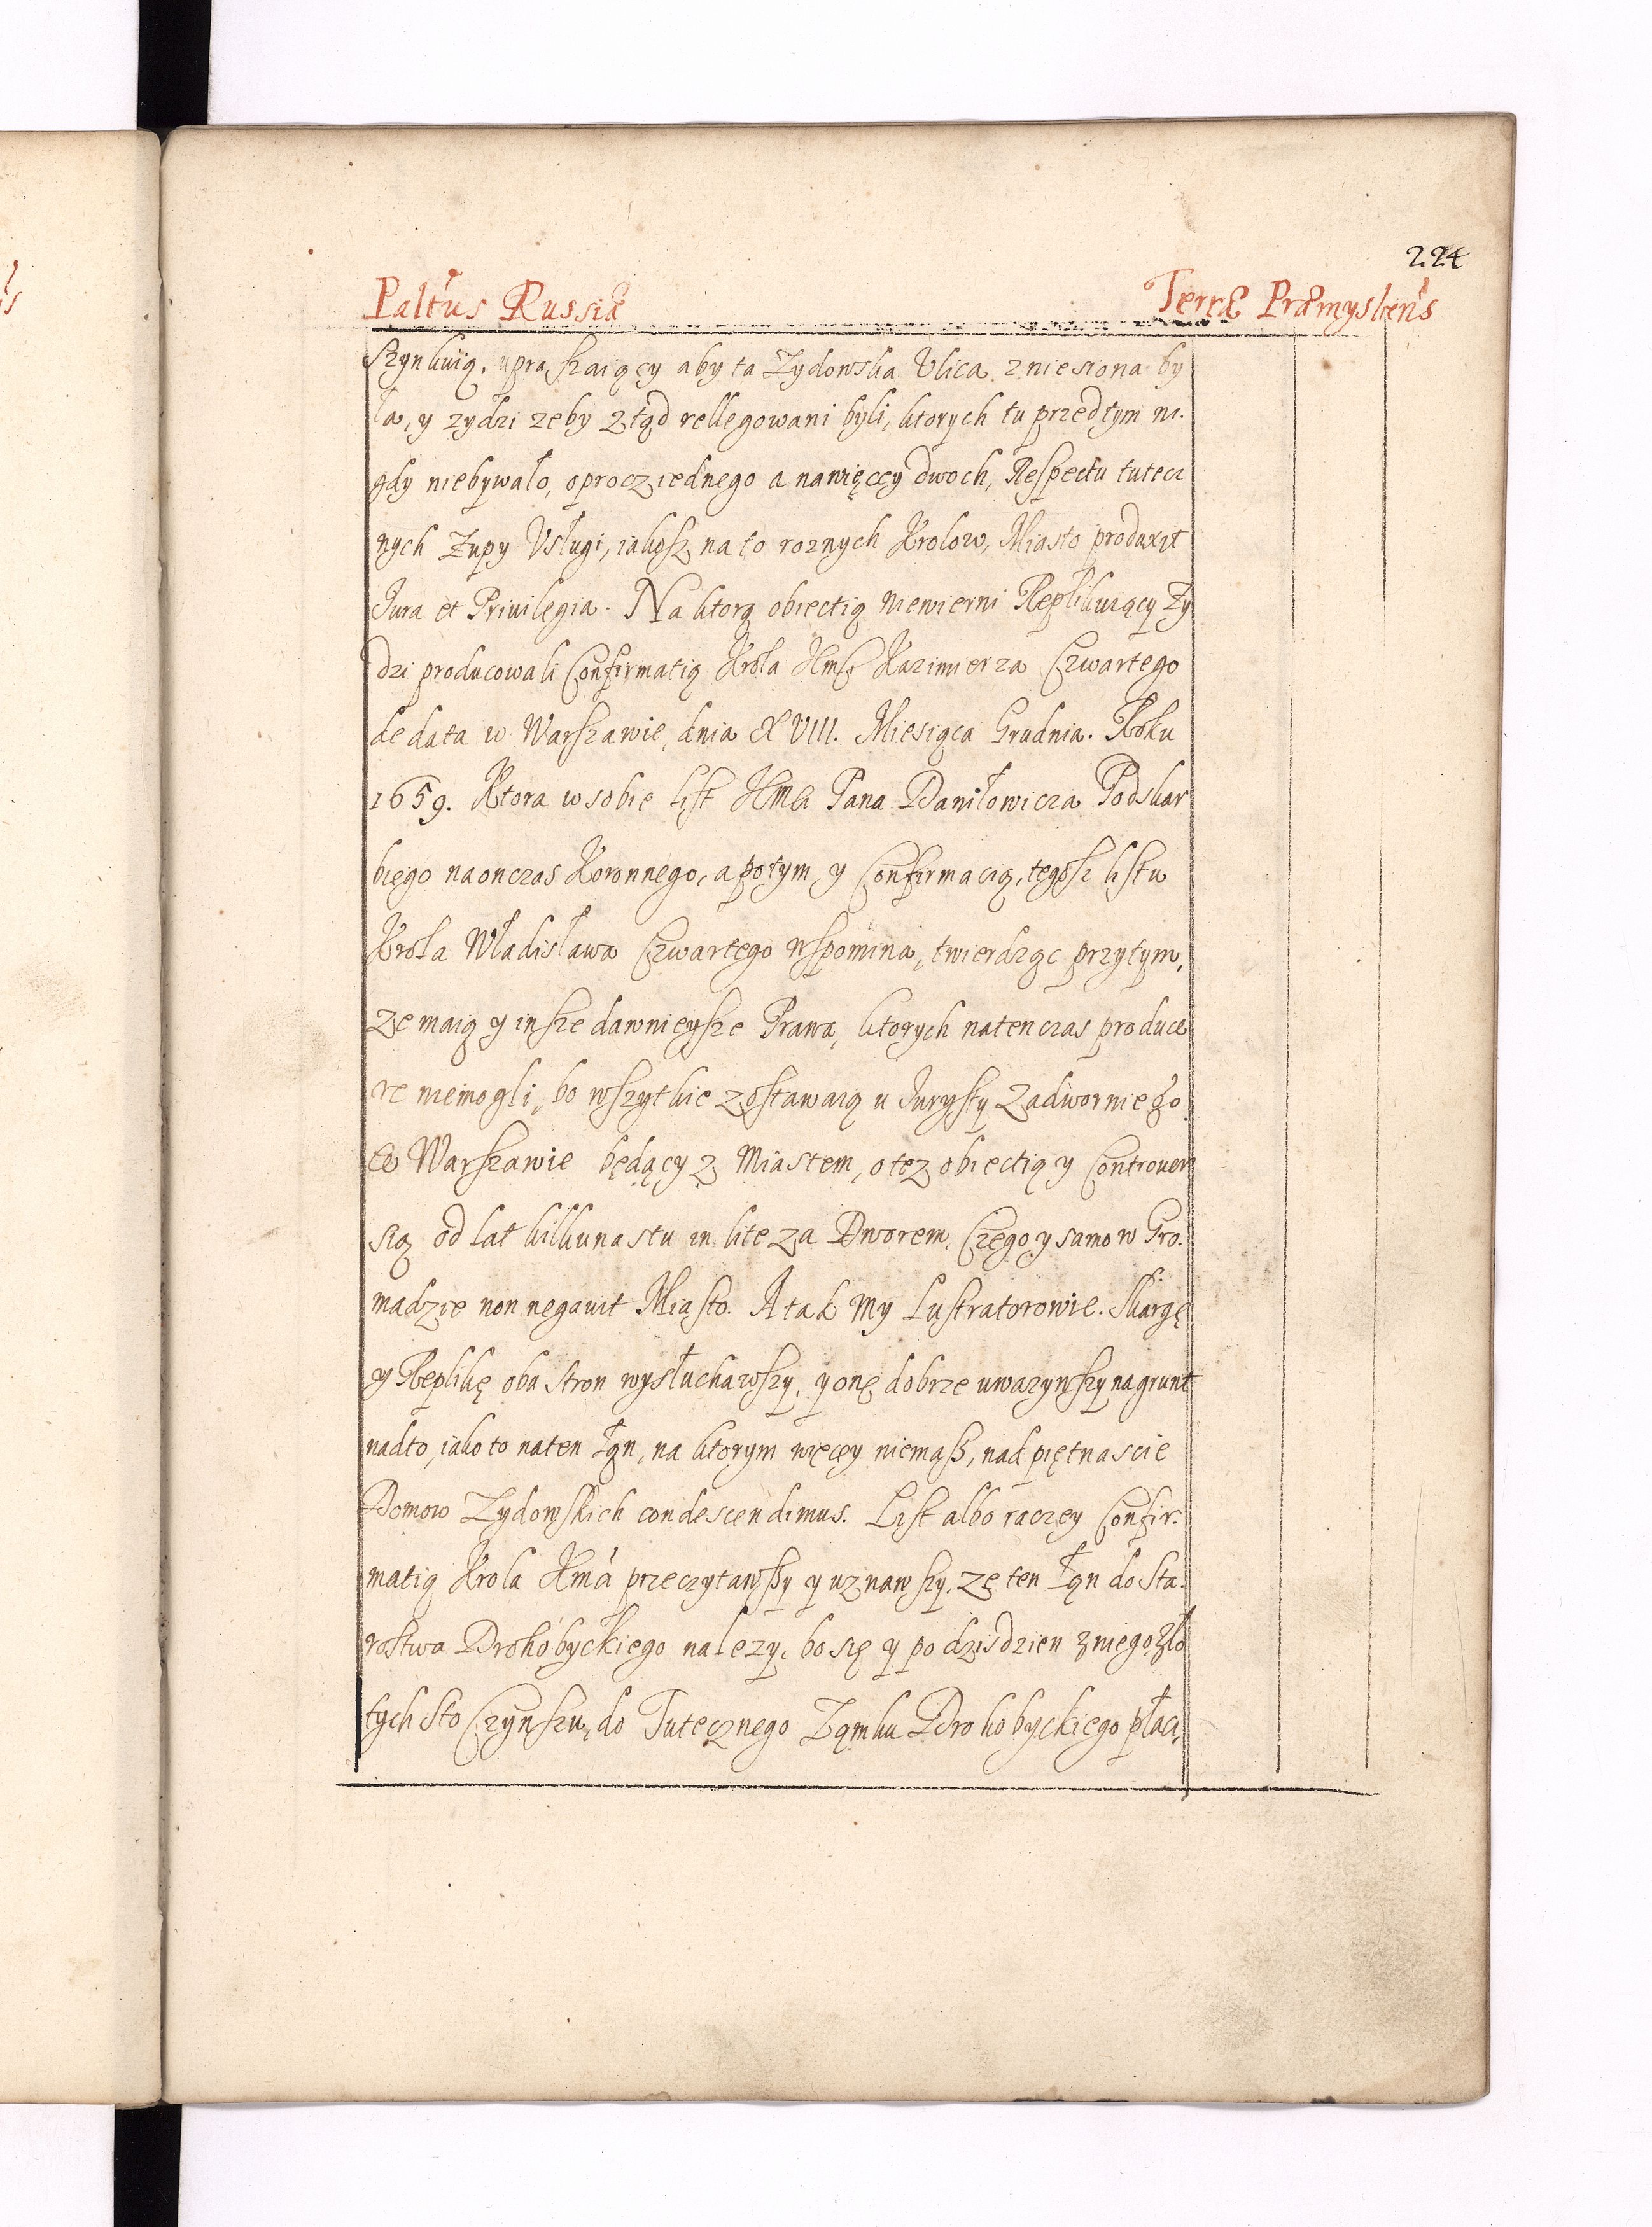 224
Paltus Russiæ Terræ Præmysliens
szynkuią, upraszaiący aby ta Zydowska Ulica zniesiona by
ła, y zydzi zeby ztąd rellegowani byli, ktorych tu przedtym ni.
gdy niebywało, oprocz iednego a nawięcey dwoch, Respectu tutecz
nych Zupy Usługi, iakosz na to roznych Krolow, Miasto produxit
Jura et Priuilegia. Na ktorą obiectią niewierni Replikuiący Zy
dzi producowali Confirmatią Krola Jmsci Kazimierza Czwartego
de data w Warszawie, dnia XVIII. Miesiąca Grudnia. Roku
1659. Ktora w sobie List Jmci Pana Daniłowicza Podskar
biego naonczas Koronnego, a potym, y Confirmacią, tegosz listu
Krola Władisława Czwartego wspomina, twierdząc przytym,
ze maią y insze dawnieysze Prawa, ktorych natenczas produce
re niemogli, bo wszytkie zostawaią u Jurysty Zadwornie go
w Warszawie będący z Miastem, o tez obiectią y Controuer
sią od lat kilkunastu in lite za Dworem, Czego y samo w Gro.
madzie non negauit Miasto. A tak my Lustratorowie. Skargę
y Replikę oba stron wysłuchawszy, y onę dobrze uwazywszy na grunt
nadto, iako to na ten Łąn, na ktorym więcey niemasz, nad piętnascie
Domow Zydowskich condescendimus. List albo raczey Confir:
matią Krola Jmci przeczytawszy y uznawszy, ze ten Łąn do Sta.
rostwa Drohobyckiego nalezy, bo się y po dzisdzien z niego zło
tych sto Czynszu, do Tutecznego Zamku Drohobyckiego płaci,